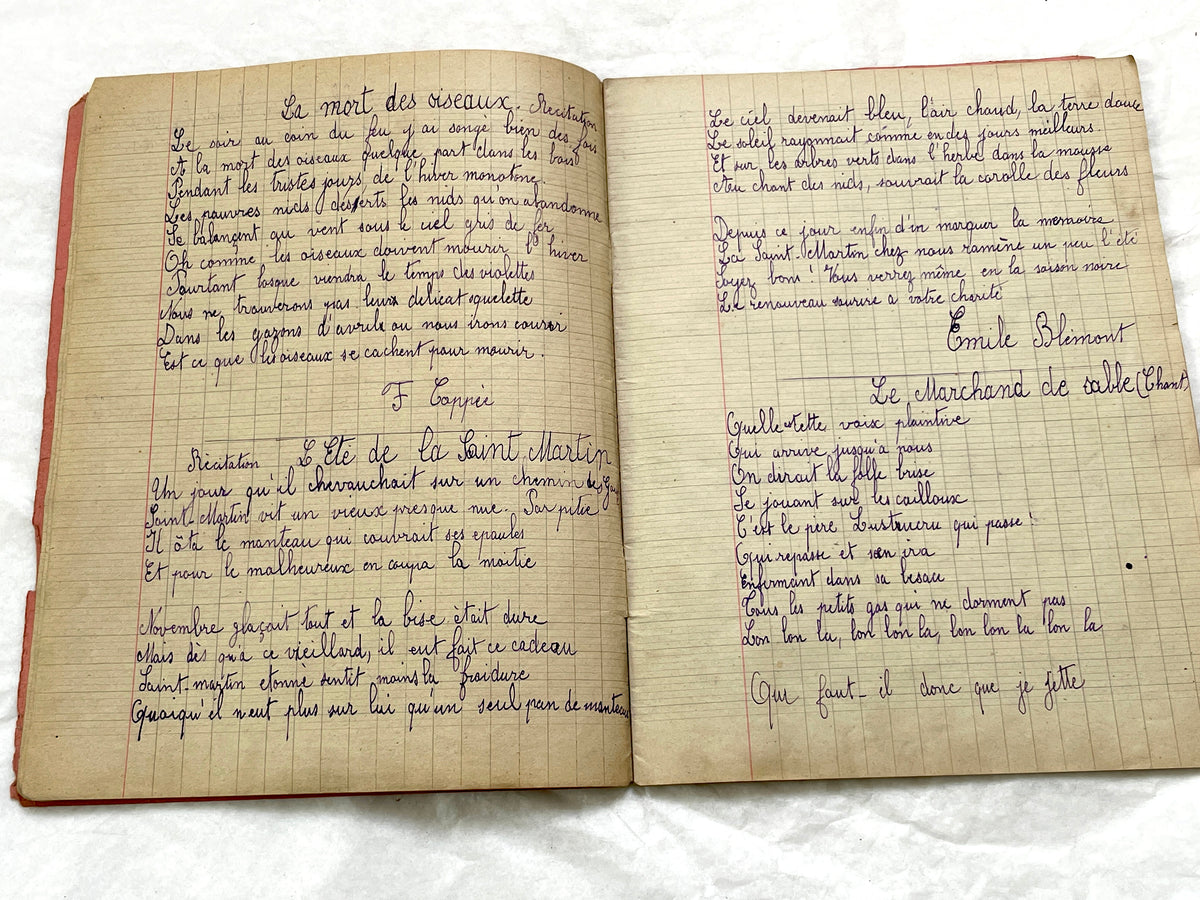 La mort des oiseaux. Récitation
Le soir au coin du feu j'ai songé bien des fois
A la mort des oiseaux quelque part dans les bois
Pendant les tristes jours de l'hiver monotone.
Les pauvres nids déserts les nids qu'on abandonne
Se balançent au vent sous le ciel gris de fer
Oh comme les oiseaux doivent mourir l'hiver
Pourtant losque viendra le temps des violettes
Nous ne trouverons pas leurs délicat squelette
Dans les gazons d'avril ou nous irons courir
Est ce que les oiseaux se cachent pour mourir.
F Coppée
Récitation L'Eté de la Saint Martin
Un jour qu'il chevauchait sur un chemin des
Saint-Martin vit un vieux presque nue. Par pitié
Il ôta le manteau qui couvrait ses epaules
Et pour le malheureux en coupa la moitie
Novembre glaçait tout et la bise était dure
Mais dès qu'à ce vieillard, il eut fait ce cadeau
Saint-martin etonné sentit moins la froidure
Quoiqu'il n'eut plus sur lui qu'un seul pan de manteau
Le ciel devenait bleu, l'air chaud, la terre douce
Le soleil rayonnait comme en des jours meilleurs.
Et sur les arbres verts dans l'herbe dans la mousse
Au chant des nids, souvrait la corolle des fleurs
Depuis ce jour enfin d'en marquer la memoire
La Saint-Martin chez nous ramène un peu l'été
Soyez bons! Vous verrez même en la saison noire
Le renouveau sourire a votre charité
Emile Blémont
Le Marchand de sable (Chant)
Quelle cette voix plaintive
Qui arrive jusqu'à nous
On dirait la folle brise
Se jouant sur les cailloux
C'est le père Lustucru qui passe!
Qui repasse et s'en ira
Enfermant dans sa besace
Tous les petits gas qui ne dorment pas
Lon lon la, lon lon la, lon lon la lon la
Que faut-il donc que je jette